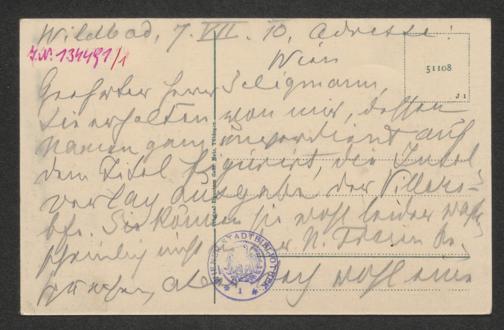 Wildbad, 7. VII. 10, Adresse:
Wien
J.N. 134491/1
51108
J 1
Geehrter Herr Seligmann,
Sie erhalten von mir, dessen
Namen ganz unverdient auf
dem Titel figuriert, die Insel
verlag ausgabe der Villers-
bfe. Sie können sie wohl leider wahr
scheinlich nicht der N. Freien
wohl eine
STADTBIBLIOTHEK